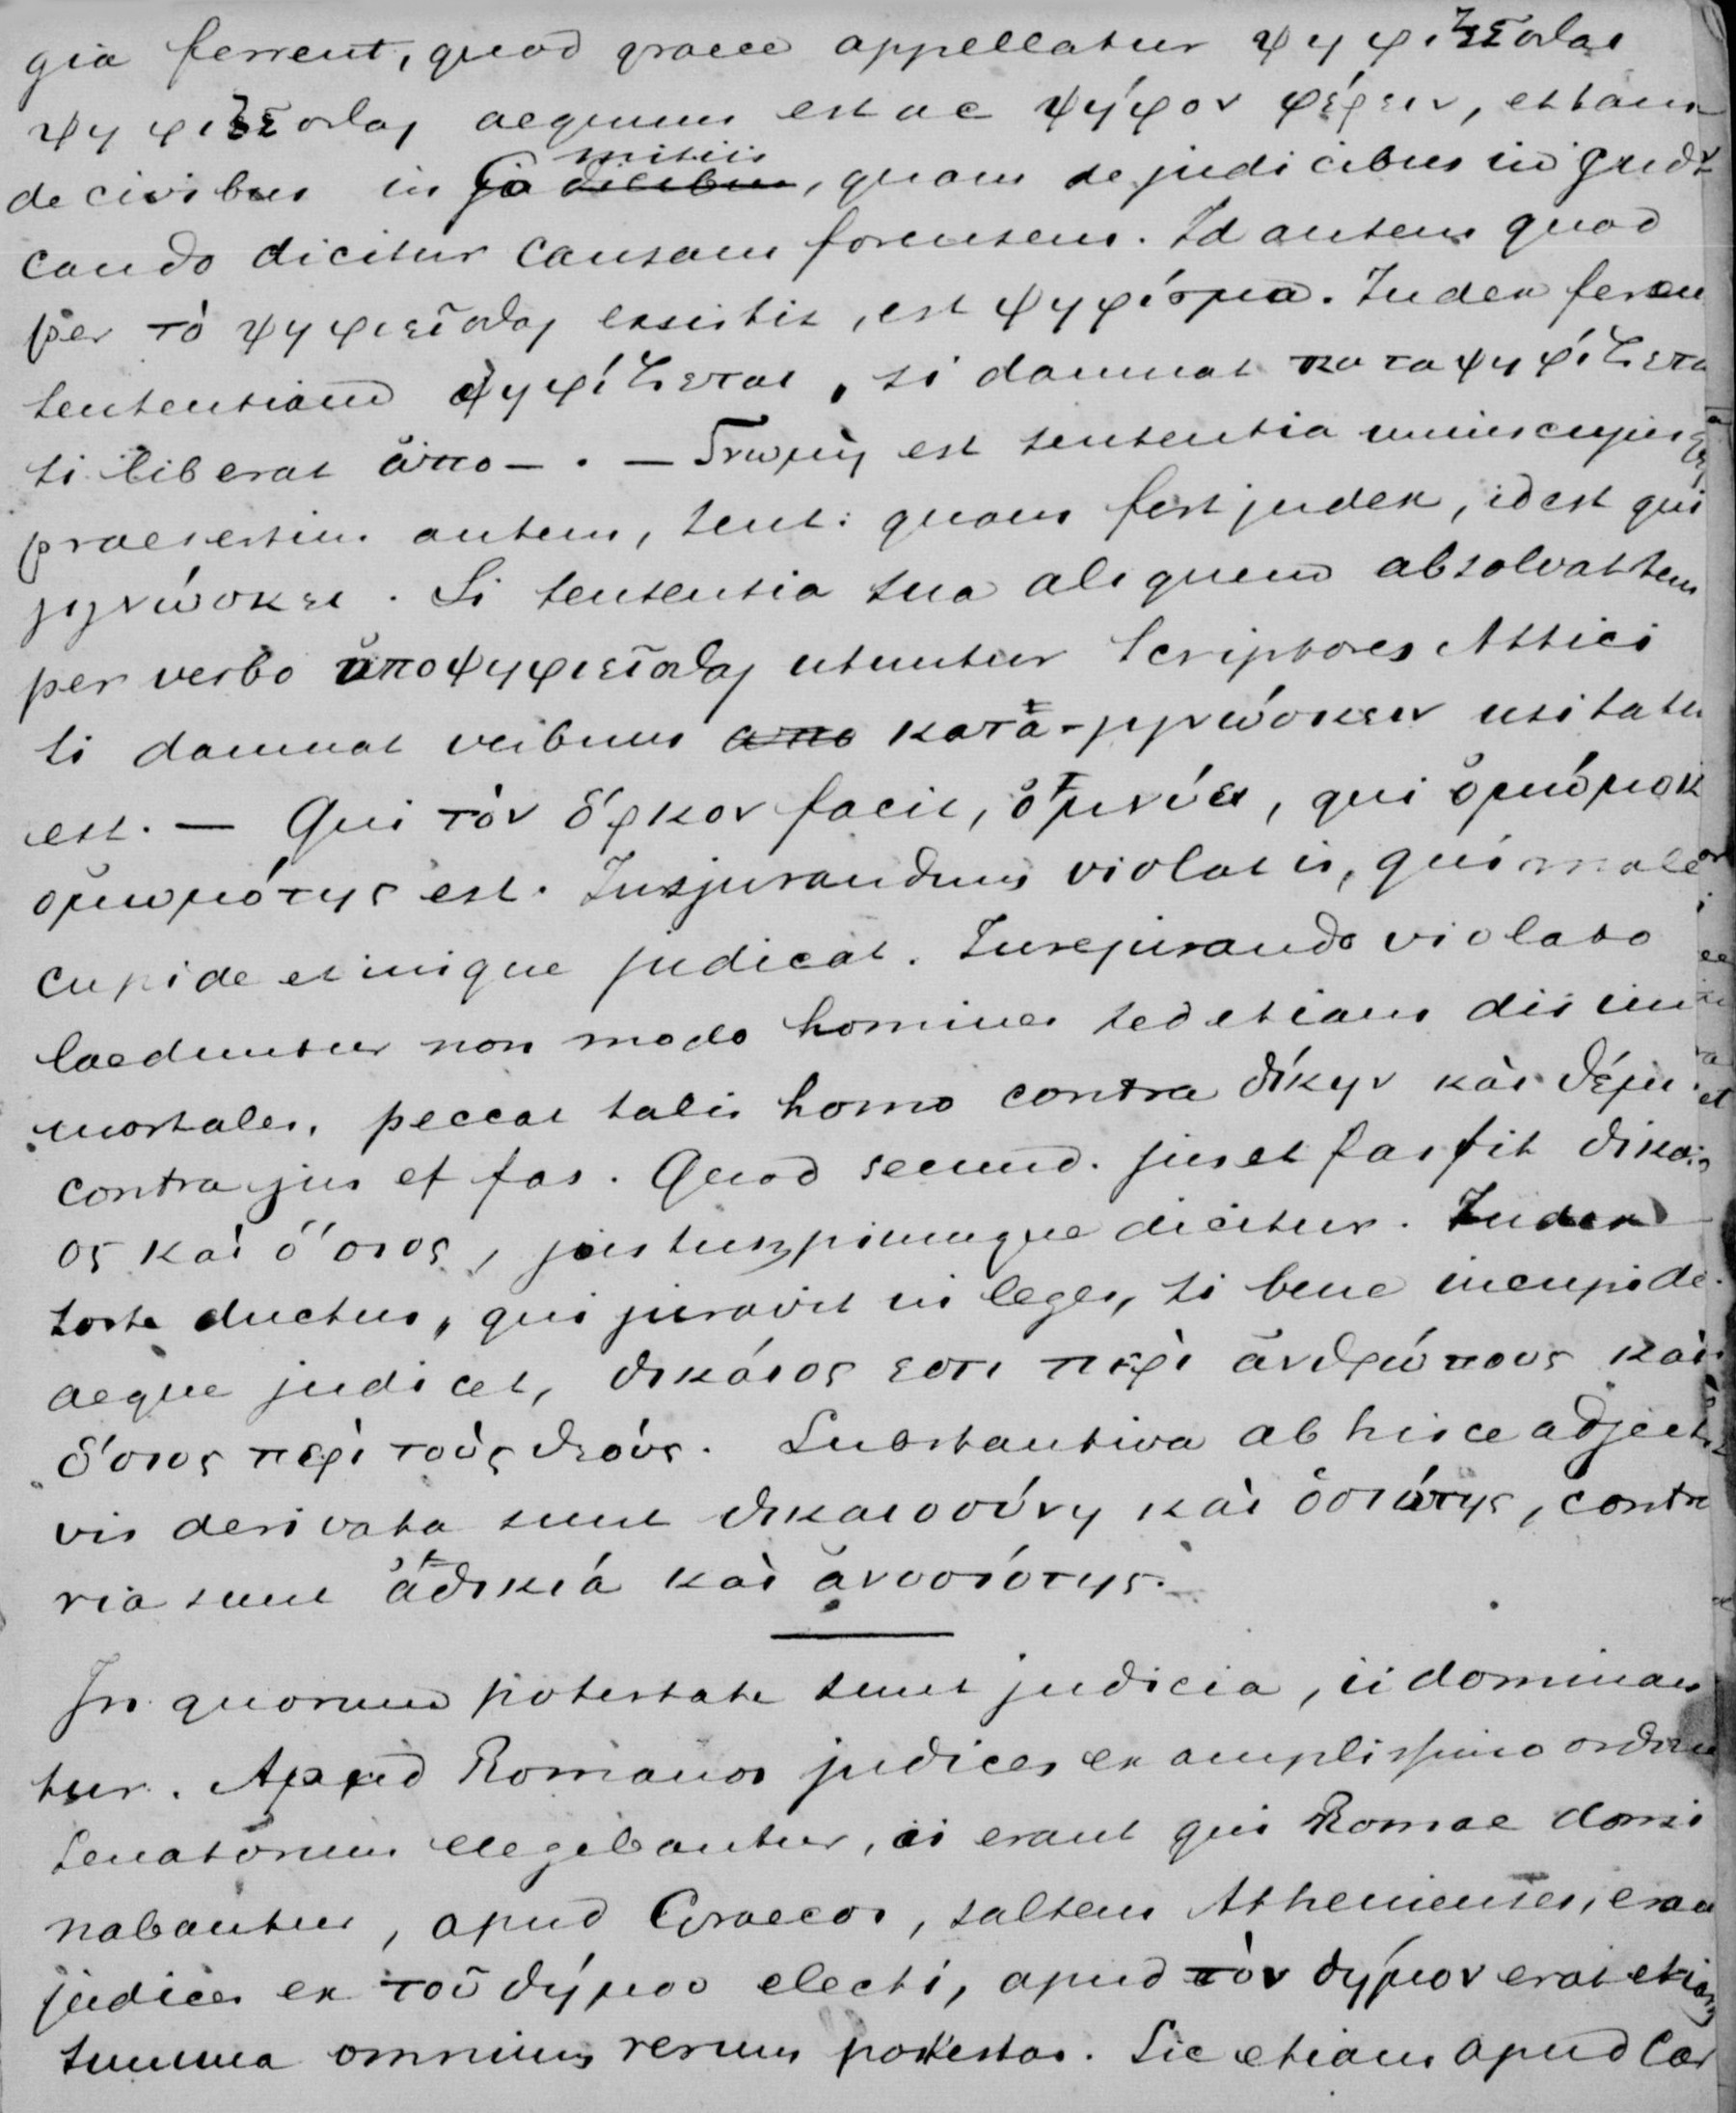 gia ferrent, quod graece appellatur ψηφιζεσθαι
ψηφιζεσθαι aequum est ac ψήφον φέρειν, et tam
de civibus in comitiis, quam de judicibus in judi
cando dicitur causam forensem. Id autem quod
per τὸ ψηφιεῖσθαι exsistit, est ψηφίσμα. Judex feren
sententiam ψηφίζεται, si damnat καταψηφίζετα
si liberat ἀπο— . — Γνωμὴ est sententia uniuscujusq
praesertim autem, sent: quam fert judex, id est qui
γιγνώσκει. Si sententia sua aliquem absolvat sem
per verbo ἀποψηφιεῖσθαι utuntur Scriptores Attici
si damnat verbum κατα-γιγνώσκειν usitatu
est. — Qui τὸν ὅρκον facit, ὀμνύει, qui ὀμώμοκ
ὀμωμότης est. Jusjurandum violat is, qui male
cupide et inique judicat. Jurejurando violato
laeduntur non modo homines sed etiam dii im
mortales, peccat talis homo contra δίκην καὶ θέμι
contra jus et fas. Quod secund. jus et fas fit δίκαι
ος καὶ ὅσιος, justum, piumque dicitur. Judex
sorte ductus, qui juravit in leges, si bene incupide
aeque judicet, δικάιος εστι περὶ ἀνθρώπους καὶ
ὅσιος περὶ τοὺς θεούς. Substantiva ab hisce adjecti
vis derivata sunt δικαιοσύνη καὶ ὁσιότης, contra
ria sunt ἀδικιά καὶ ἀνοσιότης.
In quorum potestate sunt judicia, ii dominan
tur. Apud Romanos judices ex amplissimo ordine
Senatorum elegebantur, ii erant qui Romae domi
nabantur, apud Graecos, saltem Athenienses, eran
judices ex τοῦ δήμου electi, apud τὸν δήμον erat etiam
summa omnium rerum potestas. Sic etiam apud Car